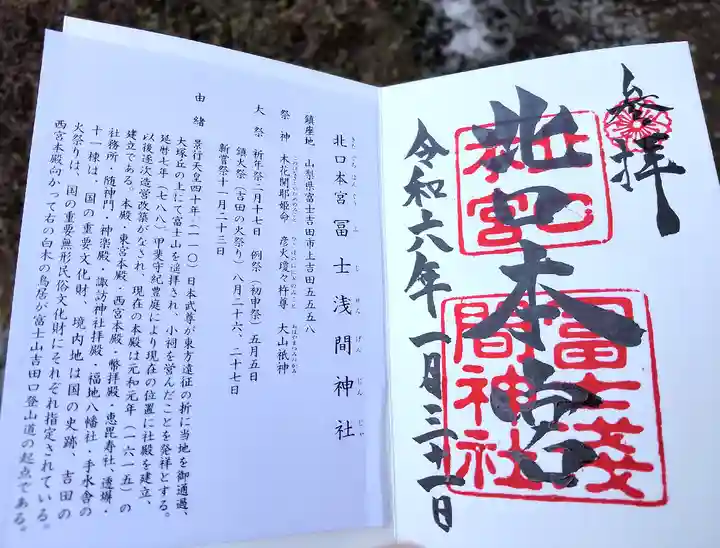 参拝
北口本宮
令和六年一月三十一日
北口
本宮
冨士浅
間神社
きたぐちほんぐうふじせんげんじんじゃ
北口本宮冨士浅間神社
鎮座地　山梨県富士吉田市上吉田五五五八
祭　神　木花開耶姫命　彦火瓊々杵尊　大山祇神
大　祭　祈年祭二月十七日　例祭（初申祭）五月五日
鎮火祭（吉田の火祭り）八月二十六、二十七日
新嘗祭十一月二十三日
由　緒　景行天皇四十年（一一〇）日本武尊が東方遠征の折に当地を御通過、
大塚丘の上にて富士山を遥拝され、小祠を営んだことを発祥とする。
延暦七年（七八八）甲斐守紀豊庭により現在の位置に社殿を建立、
以後逐次造営改築がなされ、現在の本殿は元和元年（一六一五）の
建立である。本殿・東宮本殿・西宮本殿・幣拝殿・恵毘寿社・透塀・
社務所・随神門・神楽殿・諏訪神社拝殿・福地八幡社・手水舎の
十一棟は、国の重要文化財、境内地は国の史跡、吉田の
火祭りは、国の重要無形民俗文化財にそれぞれ指定されている。
西宮本殿向かって右の白木の鳥居が富士山吉田口登山道の起点である。